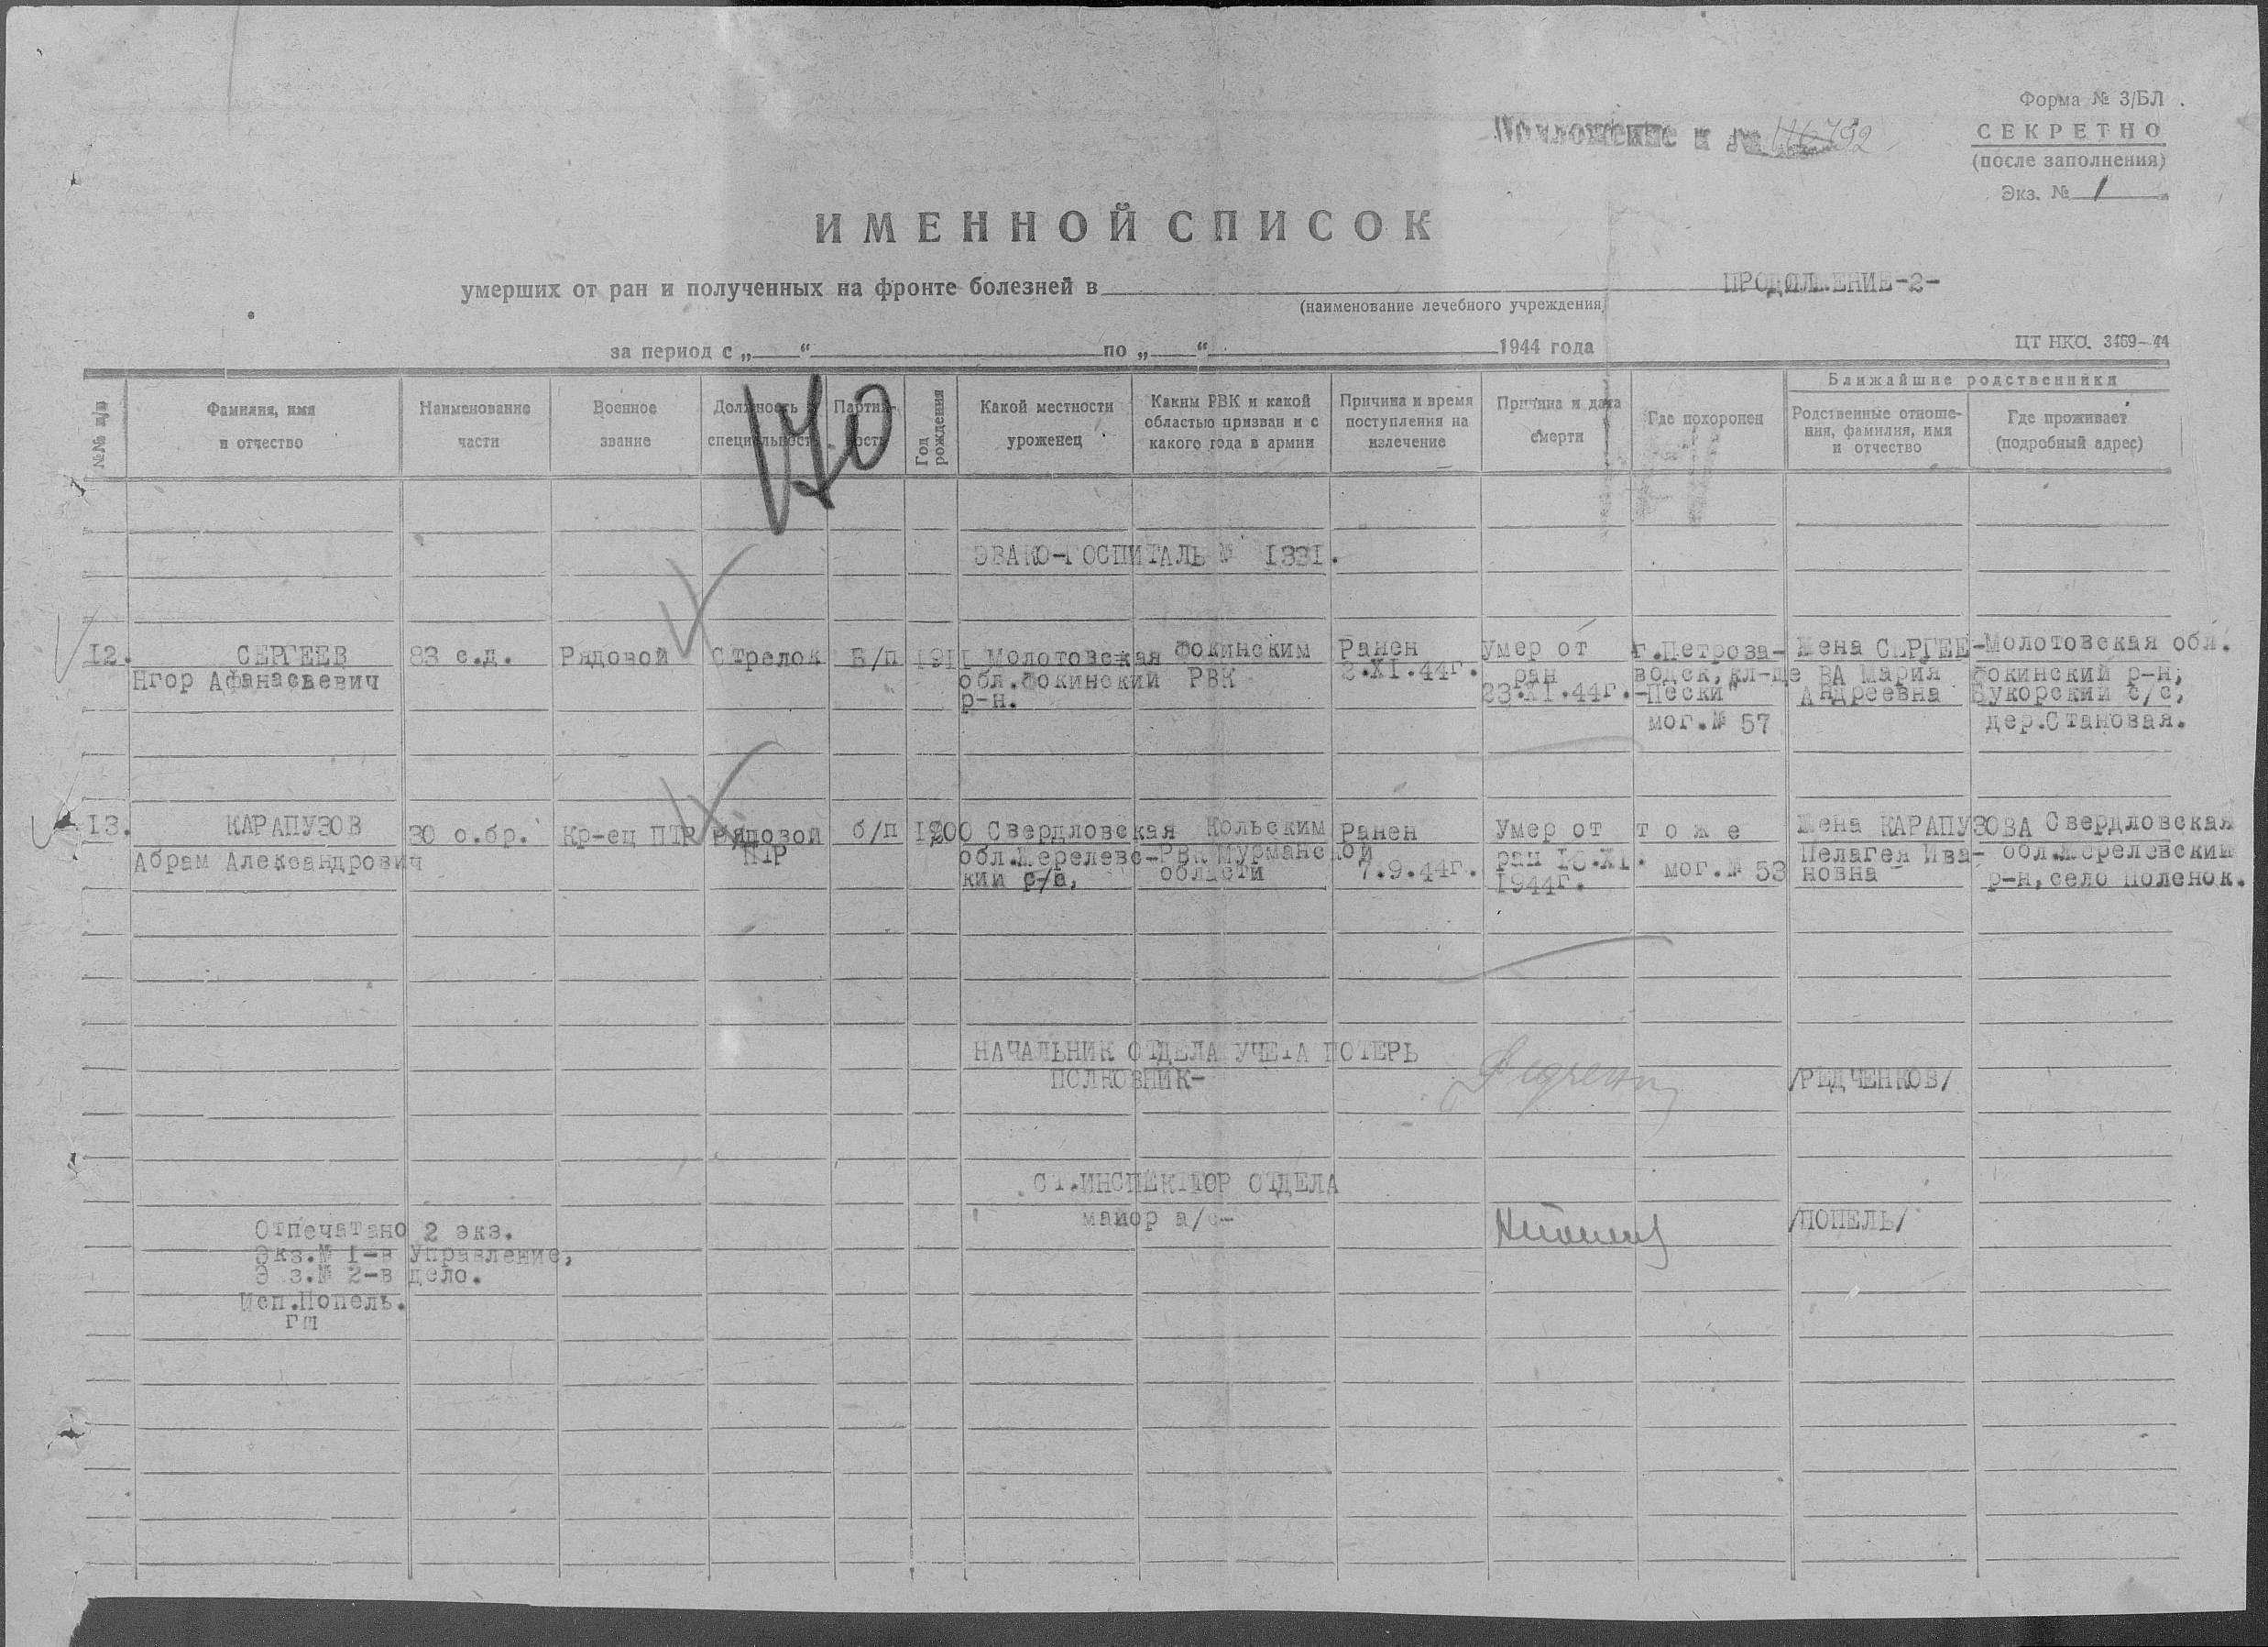 Форма № 3/БЛ
СЕКРЕТНО
(после заполнения)
Экз. № 1
ИМЕННОЙ СПИСОК
умерших от ран и полученных на фронте болезней в
ПРОДОЛ.ЕНИЕ-2-
(наименование лечебного учреждения)
за период с „ “ по „ “ 1944 года
ЦТ НКО. 3469-44
№№ п/п
Фамилия, имя
и отчество
Наименование
части
Военное
звание
Должность
специальность
Партий-
ность
Год
рождения
Какой местности
уроженец
Каким РВК и какой
областью призван и с
какого года в армии
Причина и время
поступления на
излечение
Причина и дата
смерти
Где похоронен
Ближайшие родственники
Родственные отноше-
ния, фамилия, имя
и отчество
Где проживает
(подробный адрес)
170
ЭВАКО-ГОСПИТАЛЬ № 1331.
12.
СЕРГЕЕВ
Нгор Афанасьевич
83 с.д.
Рядовой
Стрелок
Б/п
1911
Молотовская
обл.Фокинский
р-н.
Фокинским
РВК
Ранен
2.XI.44г.
Умер от
ран
23.XI.44г.
г.Петроза-
водск, кл-ще
-Пески"
мог.№ 57
Жена СЕРГЕЕ-
ВА Мария
Андреевна
Молотовская обл.
Фокинский р-н,
Букорский с/с,
дер.Становая.
13.
КАРАПУЗОВ
Абрам Александрович
30 о.бр.
Кр-ец ПТР
Рядовой
ПТР
б/п
1900
Свердловская
обл.Жерелевс-
кий с/в,
Кольским
РВК Мурманской
области
Ранен
7.9.44г.
Умер от
ран 10.XI.
1944г.
т о ж е
мог.№ 53
Жена КАРАПУЗОВА
Пелагея Ива-
новна
Свердловская
обл.Жерелевский
р-н,село Поленок.
НАЧАЛЬНИК ОТДЕЛА УЧЕТА ПОТЕРЬ
ПОЛКОВНИК-
/РЕДЧЕНКОВ/
СТ.ИНСПЕКТОР ОТДЕЛА
майор а/с-
/ПОПЕЛЬ/
Отпечатано 2 экз.
Экз.№ 1-в Управление,
Э з.№ 2-в дело.
Исп.Попель.
гш